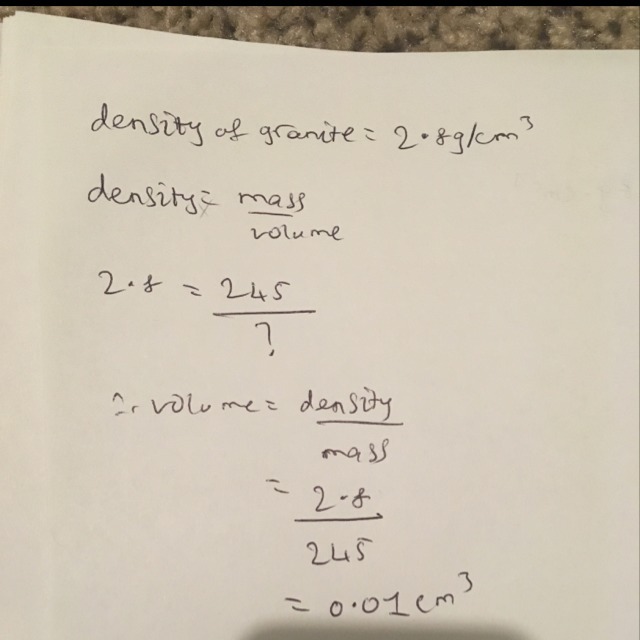 density of granite = 2.8g/cm³
density = mass
volume
2.8 = 245
?
∴ volume = density
mass
= 2.8
245
= 0.01 cm³